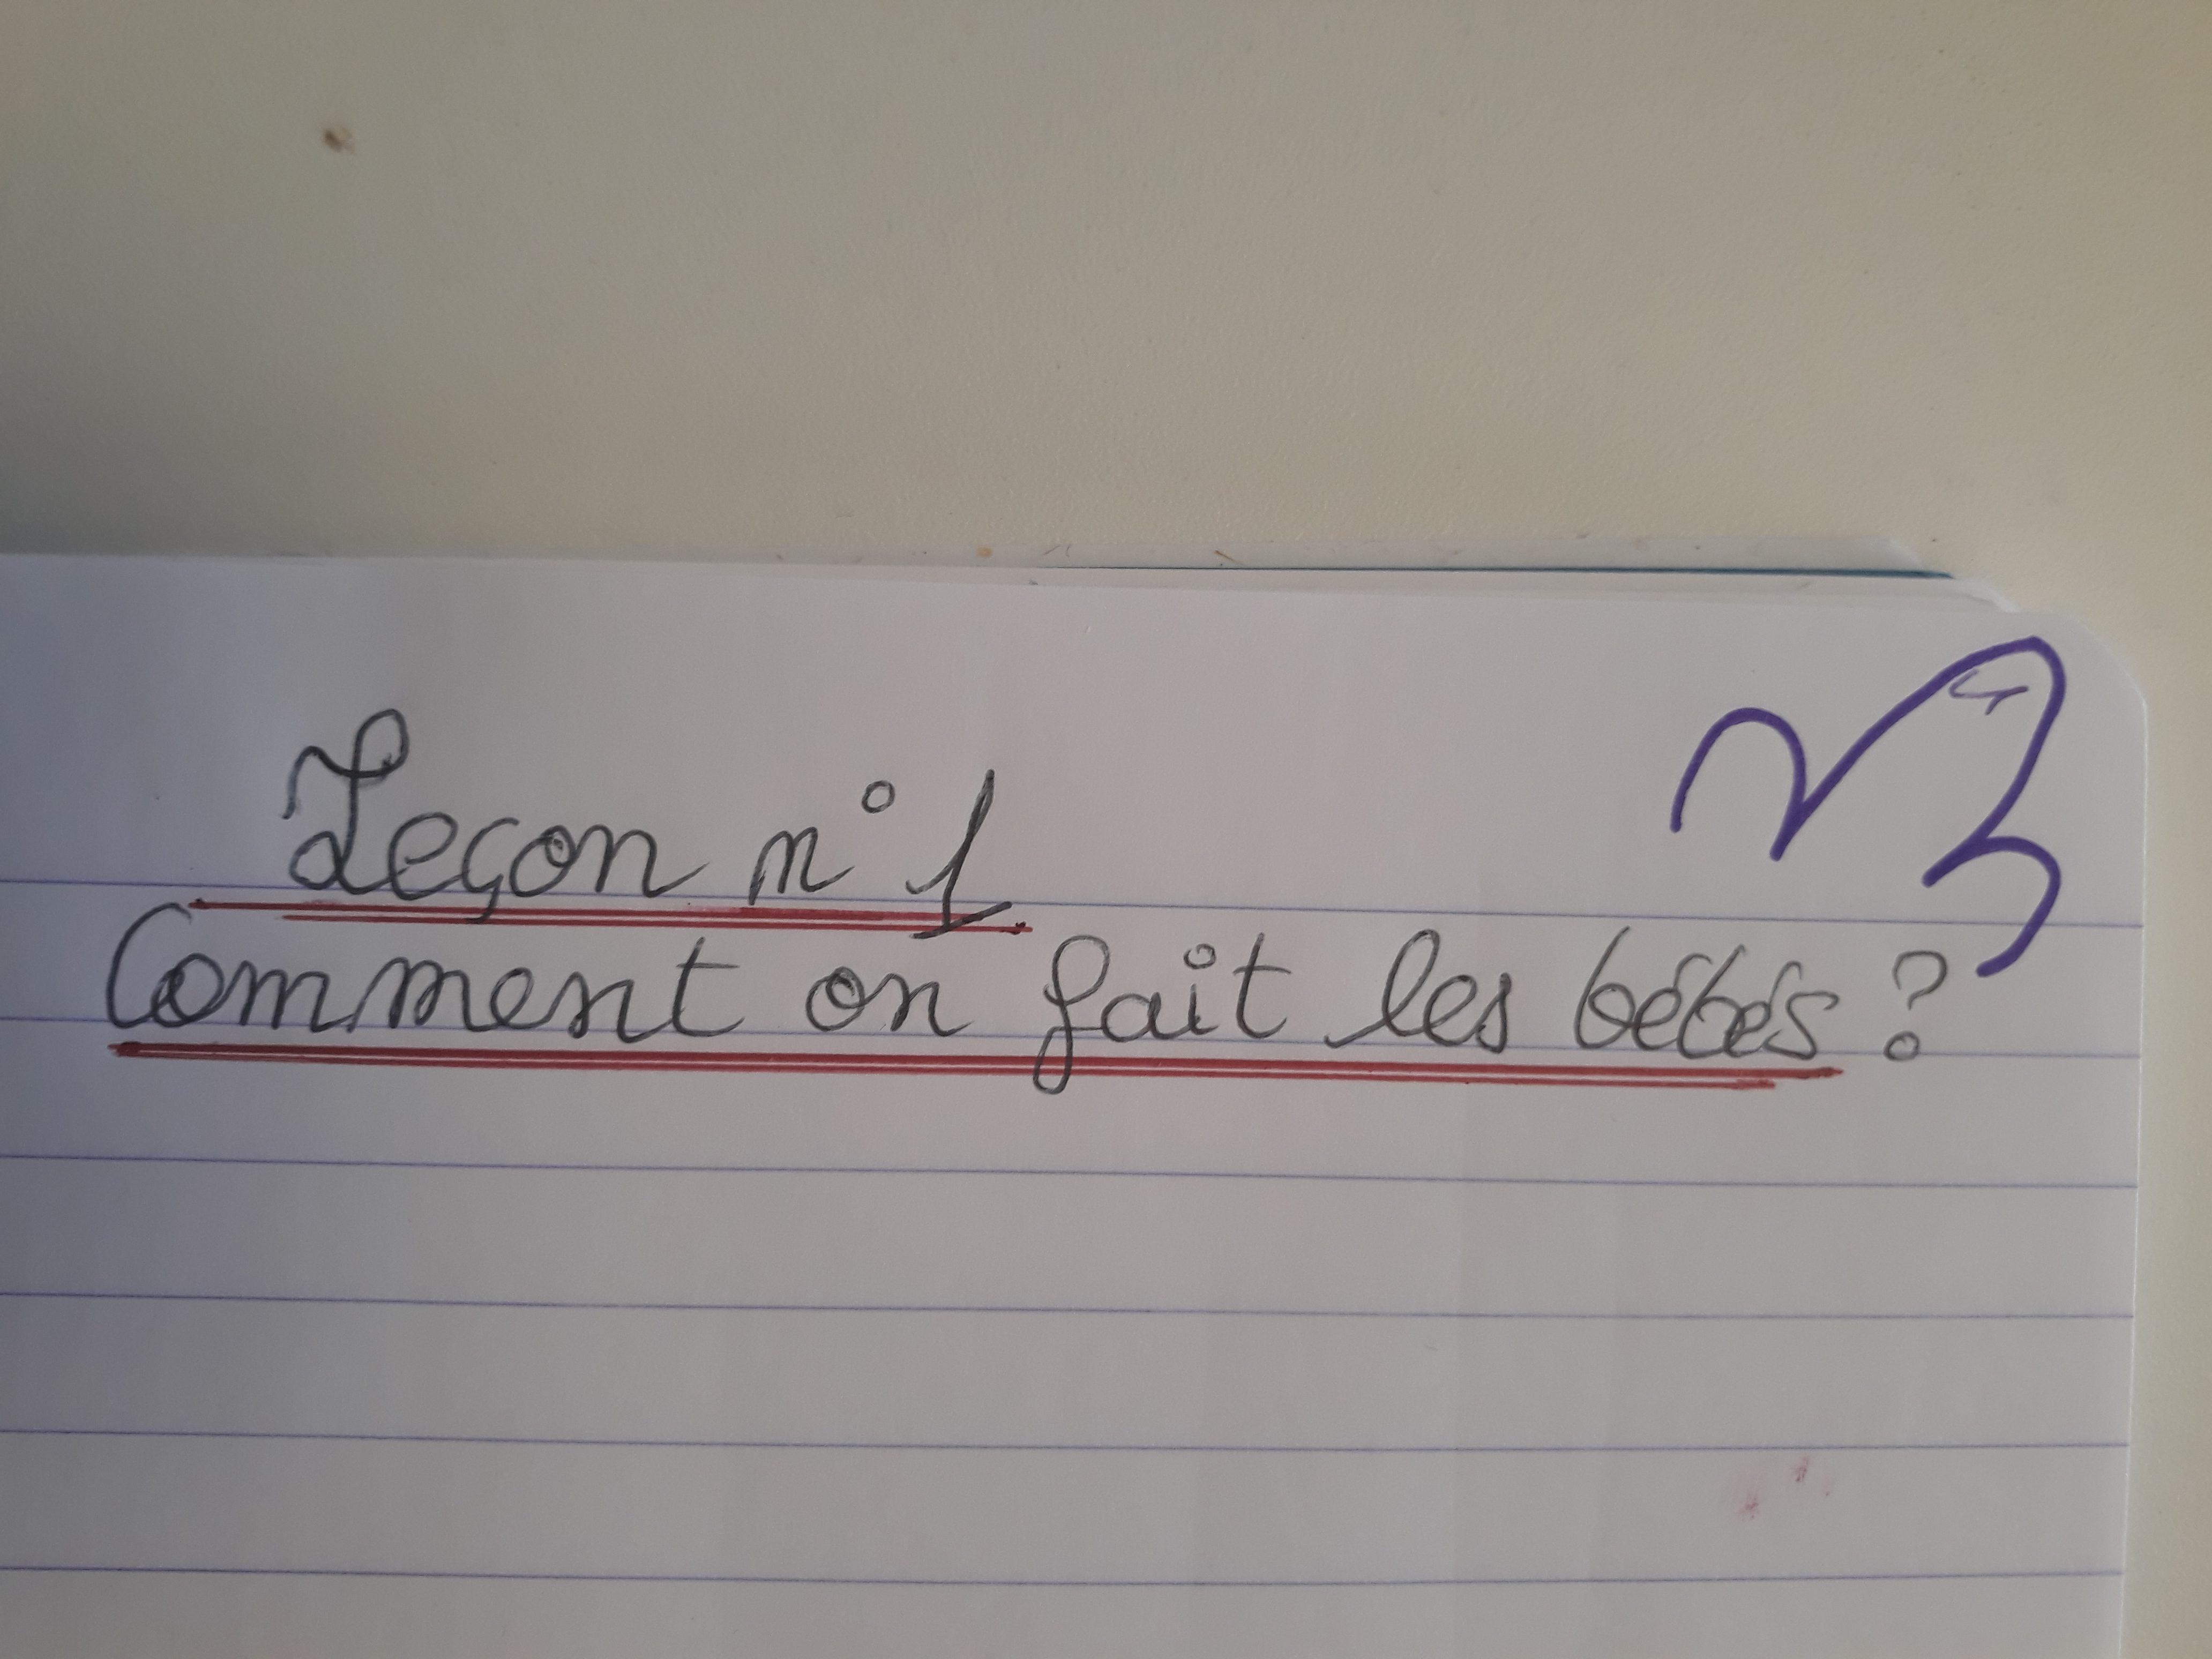 Leçon n°1
Comment on fait les bébés ?